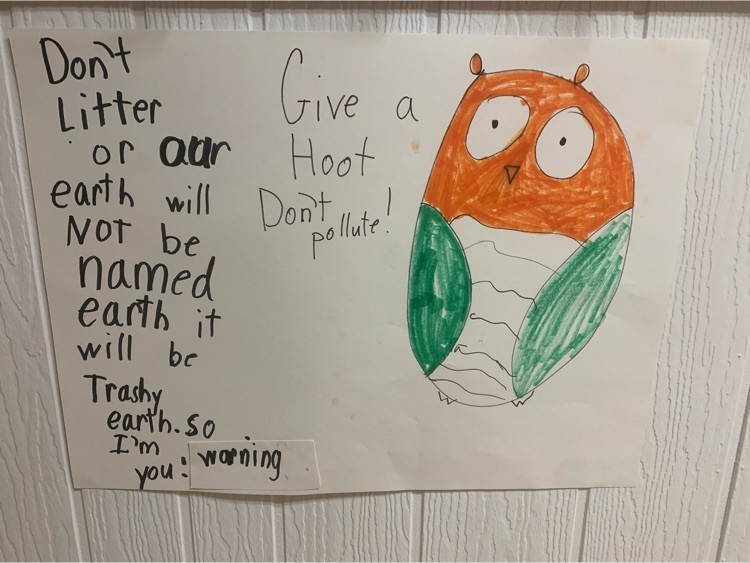 Don't
Litter
or aur
earth will
NOT be
named
earth it
will be
Trashy
earth. so
I'm
you: warning
Give a
Hoot
Don't
pollute!